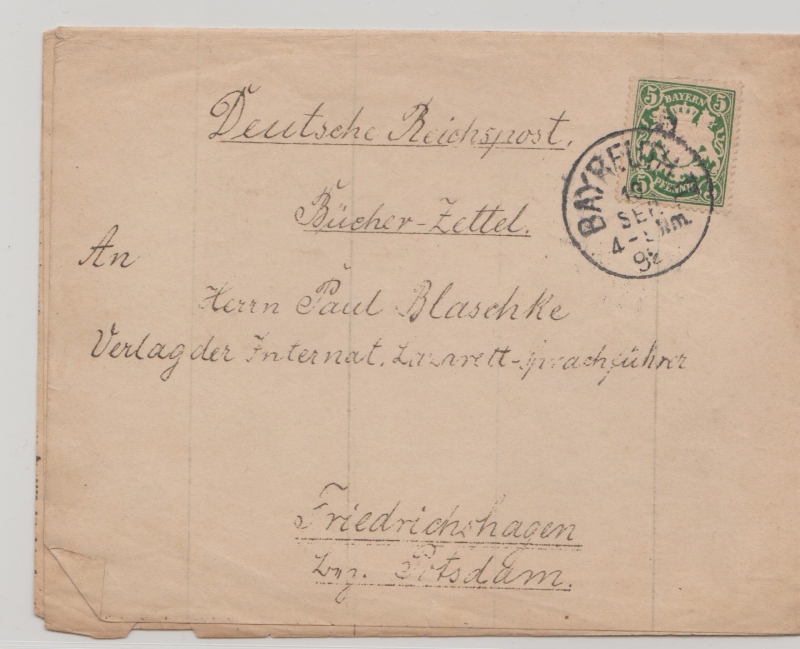 Deutsche Reichspost.
Bücher-Zettel.
An
Herrn Paul Blaschke
Verlag der Internat. Lazarett-Sprachführer
Friedrichshagen
bez. Potsdam.
5 BAYERN 5
5 PFENNIG 5
BAYREUTH
SEP
4-5 Nm.